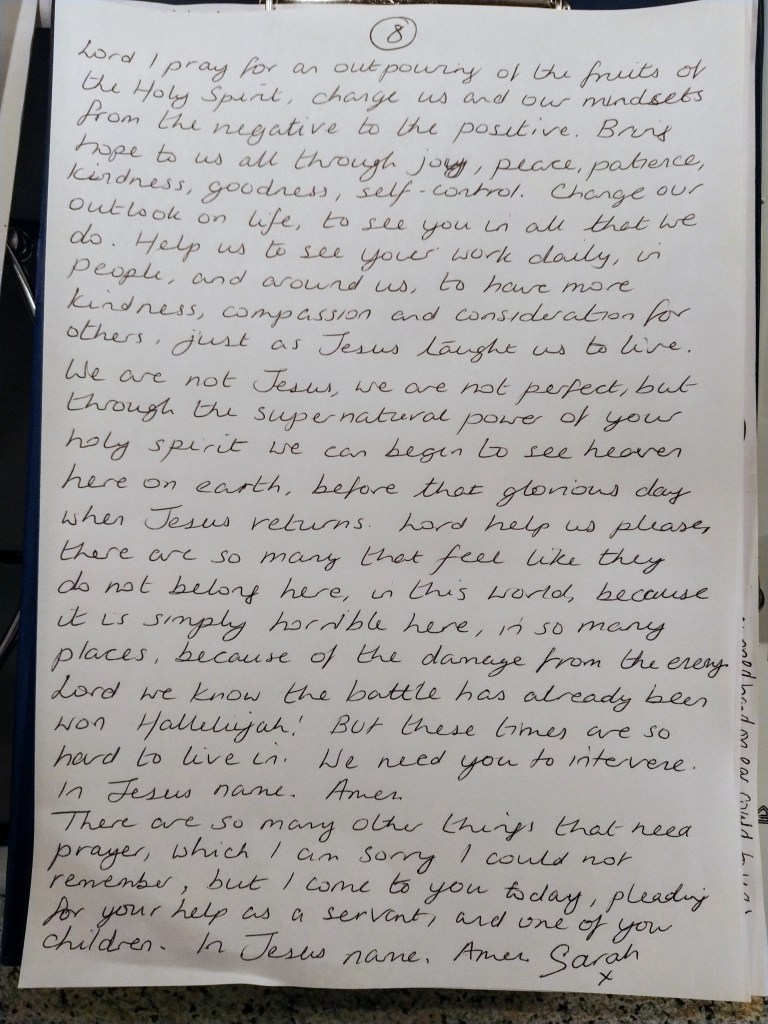 8
Lord I pray for an outpouring of the fruits of
the Holy Spirit, change us and our mindsets
from the negative to the positive. Bring
hope to us all through joy, peace, patience,
kindness, goodness, self-control. Change our
outlook on life, to see you in all that we
do. Help us to see your work daily, in
people, and around us, to have more
kindness, compassion and consideration for
others, just as Jesus taught us to live.
We are not Jesus, we are not perfect, but
through the supernatural power of your
holy spirit we can begin to see heaven
here on earth, before that glorious day
when Jesus returns. Lord help us please,
there are so many that feel like they
do not belong here, in this world, because
it is simply horrible here, in so many
places, because of the damage from the enemy
Lord we know the battle has already been
won Hallelujah! But these times are so
hard to live in. We need you to intervene.
In Jesus name. Amen
There are so many other things that need
prayer, which I am sorry I could not
remember, but I come to you today, pleading
for your help as a servant, and one of your
children. In Jesus name. Amen Sarah
x